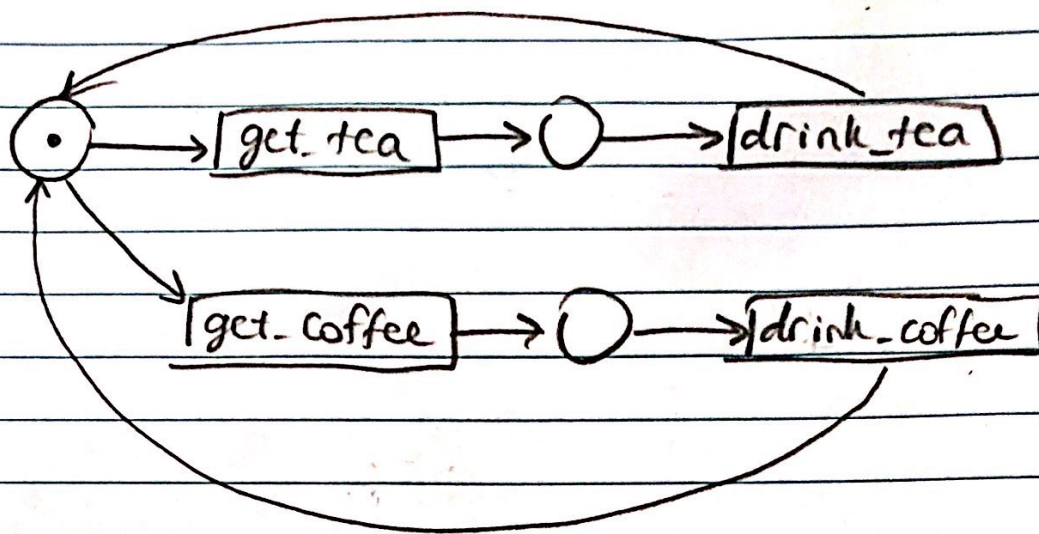 get_tea
drink_tea
get_coffee
drink_coffee